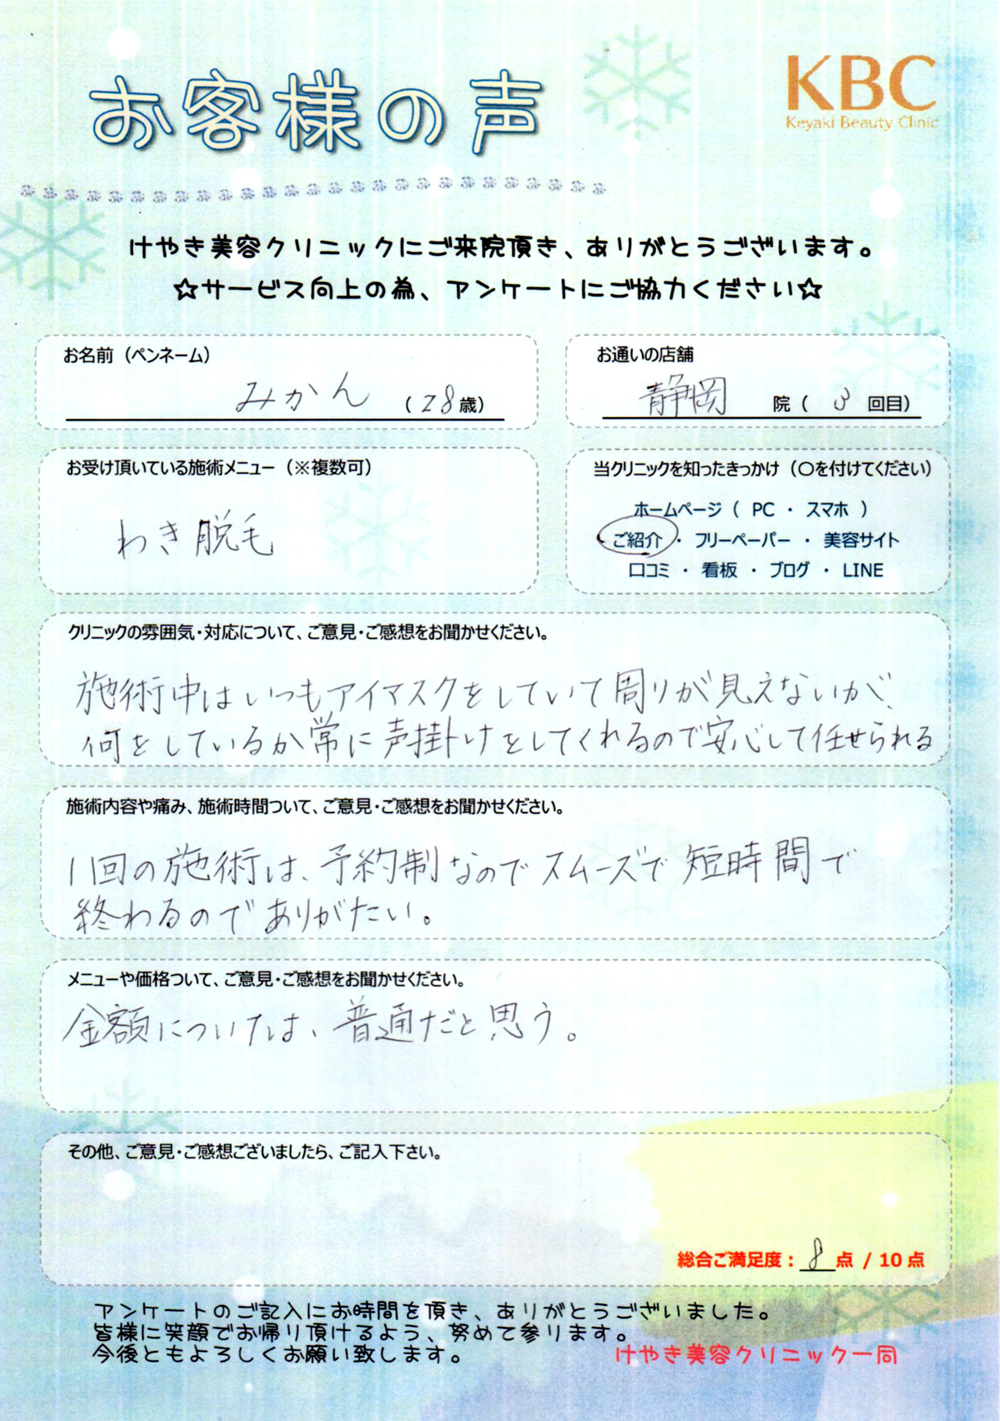 お客様の声
KBC
Keyaki Beauty Clinic
けやき美容クリニックにご来院頂き、ありがとうございます。
☆サービス向上の為、アンケートにご協力ください☆
お名前（ペンネーム）
みかん （28歳）
お通いの店舗
静岡 院（ 3 回目）
お受け頂いている施術メニュー（※複数可）
わき脱毛
当クリニックを知ったきっかけ（〇を付けてください）
ホームページ（ PC ・ スマホ ）
ご紹介 ・ フリーペーパー ・ 美容サイト
口コミ ・ 看板 ・ ブログ ・ LINE
クリニックの雰囲気・対応について、ご意見・ご感想をお聞かせください。
施術中はいつもアイマスクをしていて周りが見えないが、
何をしているか常に声掛けをしてくれるので安心して任せられる
施術内容や痛み、施術時間ついて、ご意見・ご感想をお聞かせください。
1回の施術は、予約制なのでスムーズで短時間で
終わるのでありがたい。
メニューや価格ついて、ご意見・ご感想をお聞かせください。
金額については、普通だと思う。
その他、ご意見・ご感想ございましたら、ご記入下さい。
総合ご満足度：8点 / 10点
アンケートのご記入にお時間を頂き、ありがとうございました。
皆様に笑顔でお帰り頂けるよう、努めて参ります。
今後ともよろしくお願い致します。
けやき美容クリニック一同